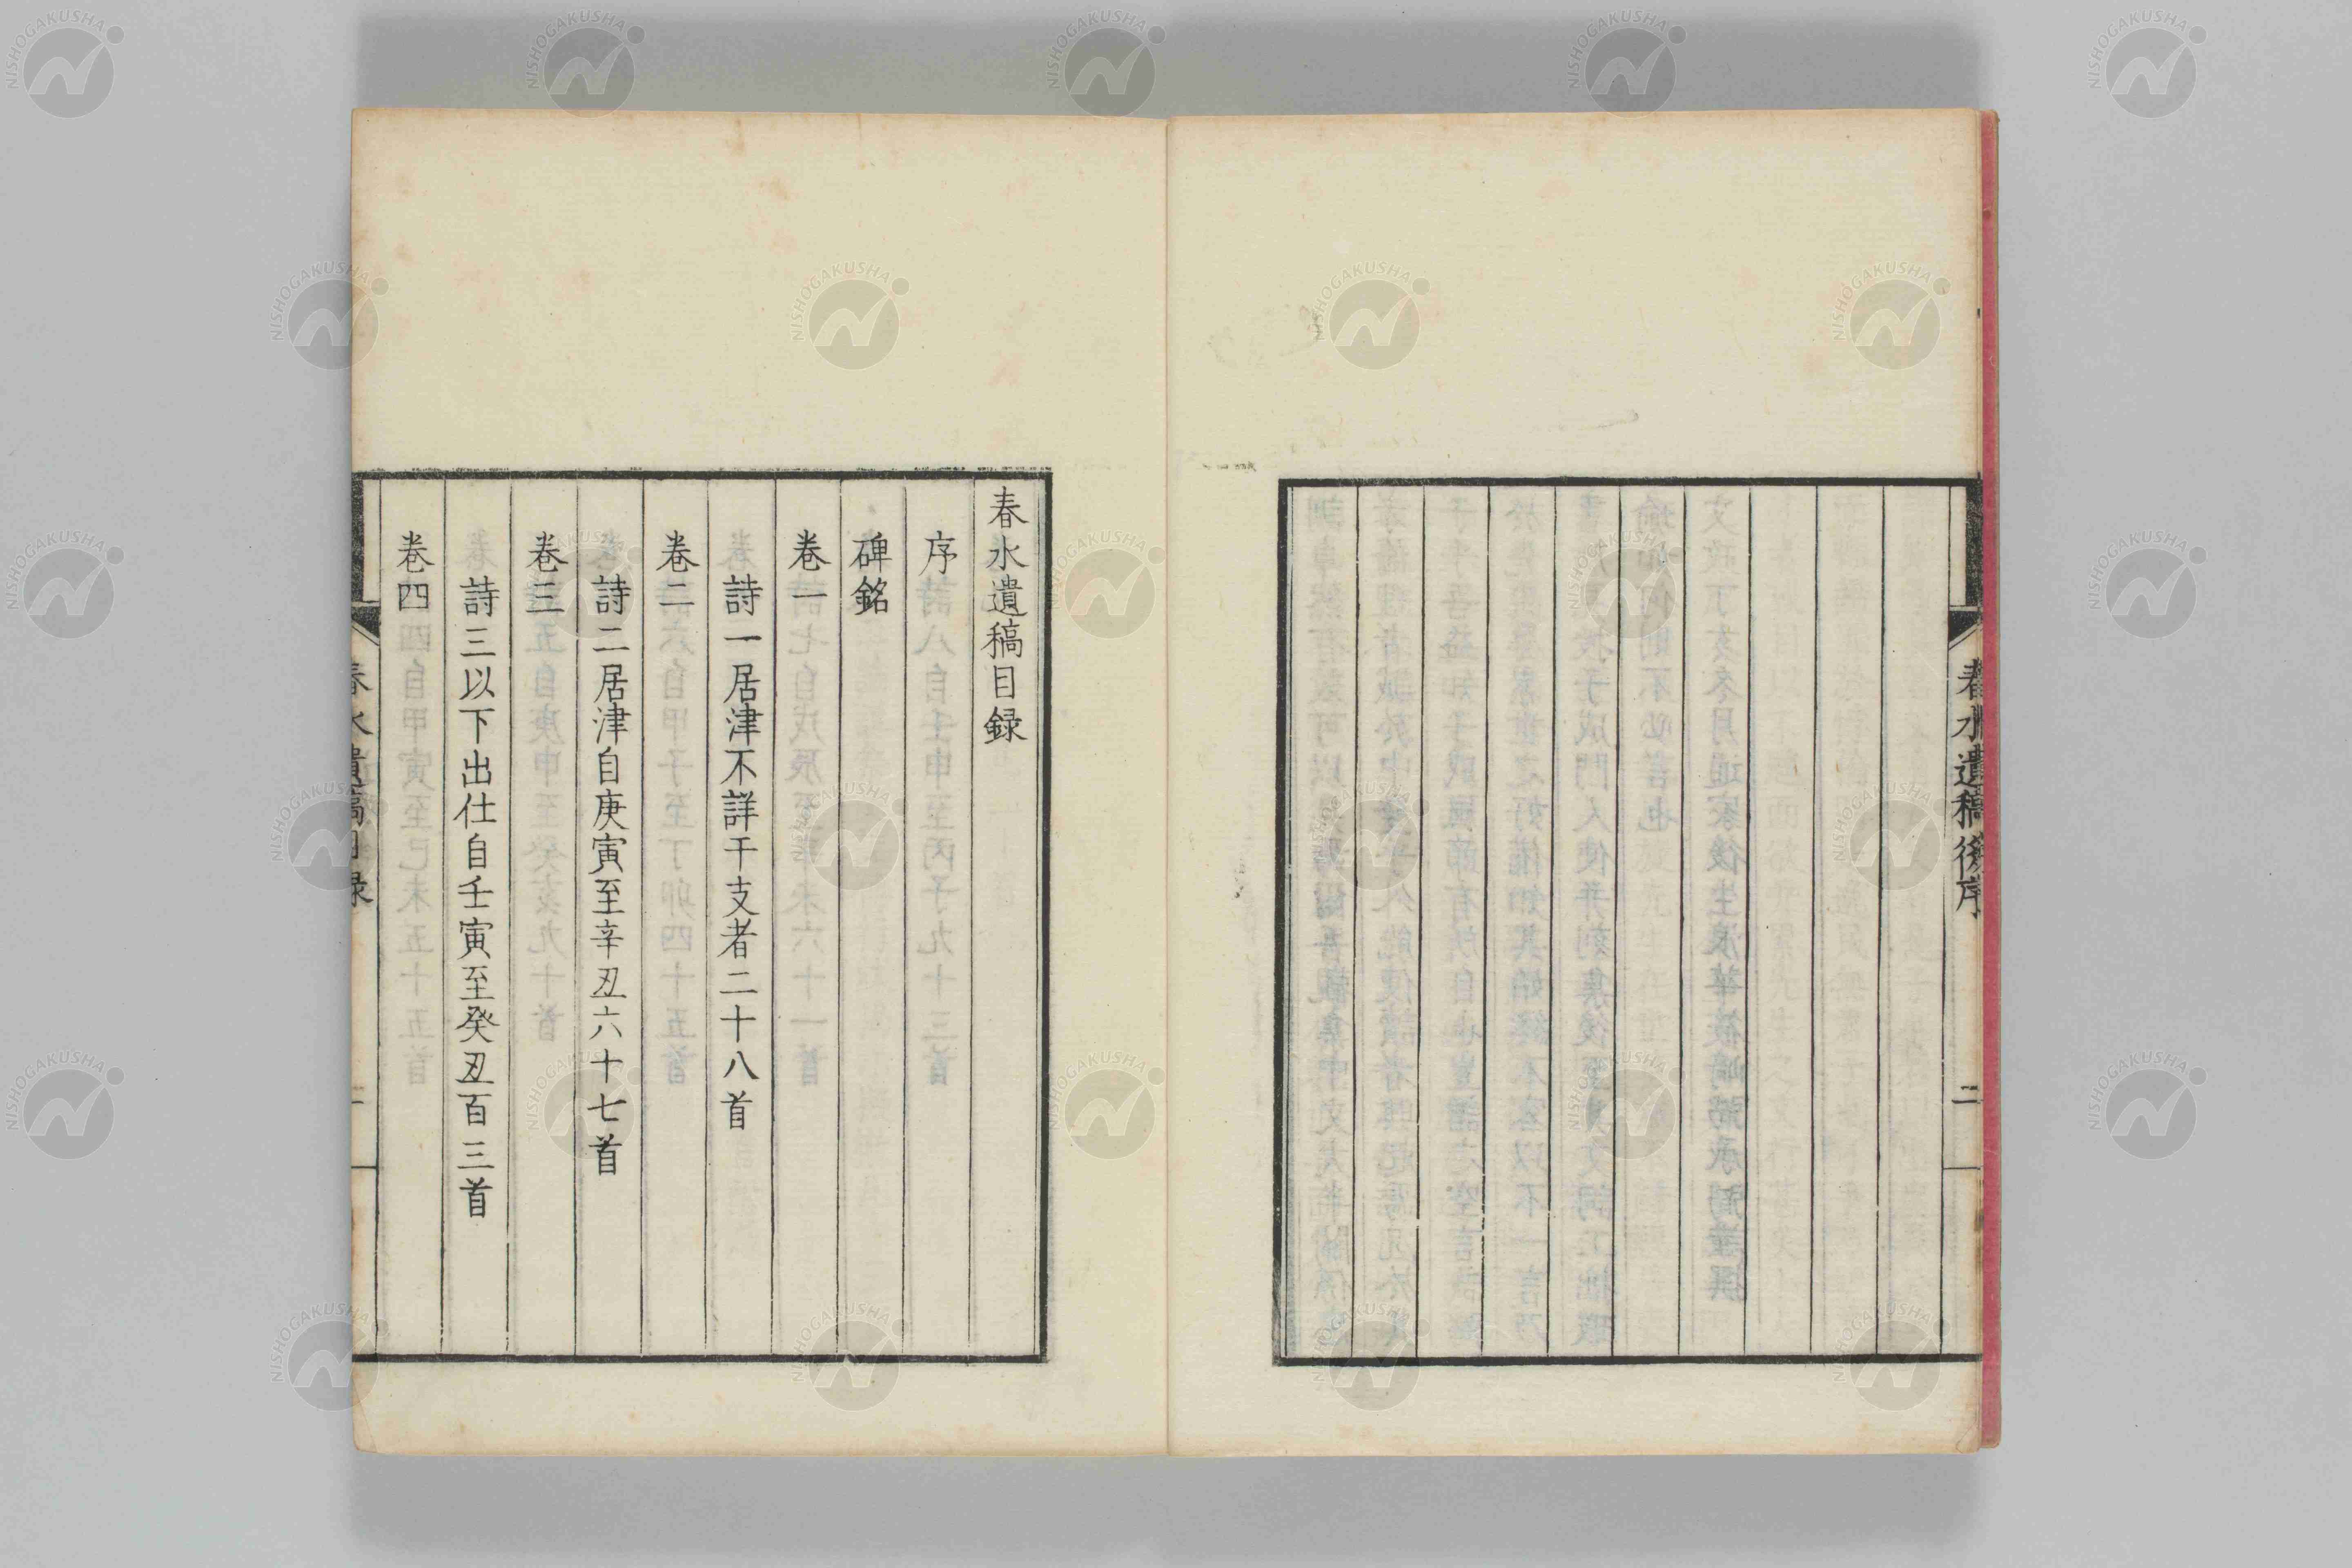 春水遺稿後序
二
春水遺稿目録
序
碑銘
巻一
詩一居津不詳干支者二十八首
巻二
詩二居津自庚寅至辛丑六十七首
巻三
詩三以下出仕自壬寅至癸丑百三首
巻四
春水遺稿目録
NISHOGAKUSHA